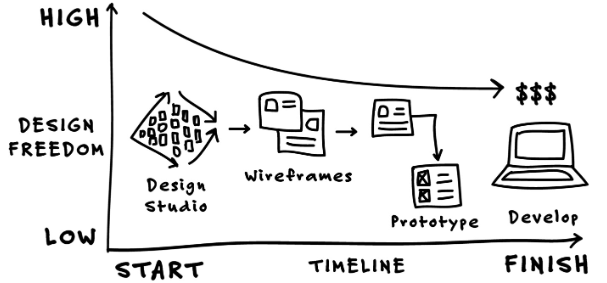 HIGH
$$$
DESIGN
FREEDOM
Design
Studio
Wireframes
Prototype
Develop
LOW
START
TIMELINE
FINISH